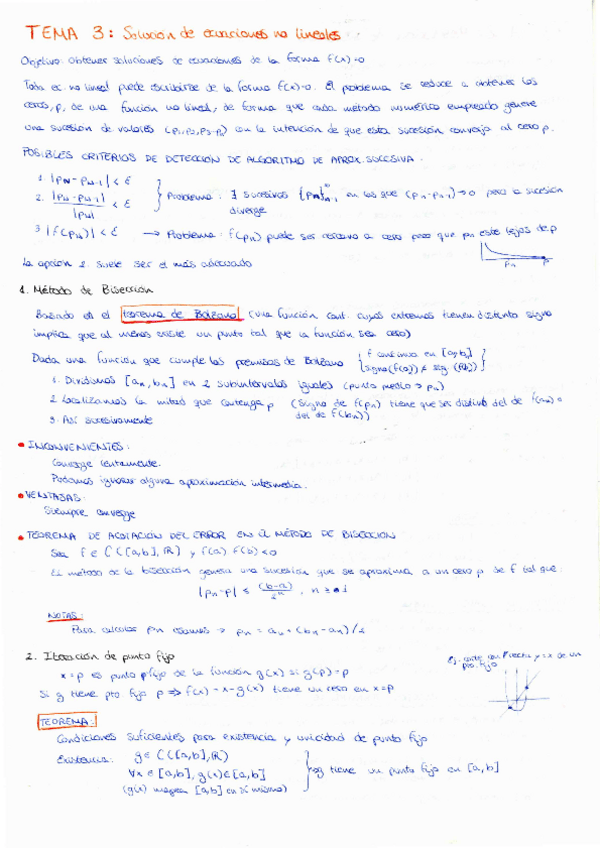 TEMA 3: Solución de ecuaciones no lineales
Objetivo: obtener soluciones de ecuaciones de la forma f(x)=0
Toda ec. no lineal puede escribirse de la forma f(x)=0. El problema se reduce a obtener los
ceros, p, de una función no lineal, de forma que cada método numérico empleado genere
una sucesión de valores (p1, p2, p3...pn) con la intención de que esta sucesión converja al cero p.
POSIBLES CRITERIOS DE DETECCIÓN DE ALGORITMO DE APROX. SUCESIVA.
1. |pN - pN-1| < ε
2. |pN - pN-1| / |pN| < ε } Problema: ∃ sucesiones {pn}∞n=1 en las que (pn - pn-1)→0 pero la sucesión
diverge
3 |f(pN)| < ε → Problema: f(pn) puede ser cercano a cero pero que pn esté lejos de p
pn p
La opción 2. suele ser el más adecuado
1. Método de Bisección
Basado en el teorema de Bolzano (una función cont. cuyos extremos tienen distinto signo
implica que al menos existe un punto tal que la función sea cero)
Dada una función que cumple las premisas de Bolzano { f continua en [a,b] signo(f(a)) ≠ sig. (f(b)) }
1. Dividimos [an, bn] en 2 subintervalos iguales (punto medio → pn)
2 Localizamos la mitad que contenga p (Signo de f(pn) tiene que ser distinto del de f(an) o
del de f(bn))
3. Así sucesivamente
• INCONVENIENTES:
Converge lentamente.
Podemos ignorar alguna aproximación intermedia.
• VENTAJAS:
Siempre converge
• TEOREMA DE ACOTACIÓN DEL ERROR EN EL MÉTODO DE BISECCIÓN
Sea f ∈ C([a,b], R) y f(a) f(b) < 0
El método de la bisección genera una sucesión que se aproxima a un cero p de f tal que:
|pn - p| ≤ (b-a)/2ⁿ , n ≥ 1
NOTAS:
Para calcular pn usamos → pn = an + (bn - an)/2
2. Iteración de punto fijo
x = p es punto fijo de la función g(x) si g(p) = p
Si g tiene pto fijo p ⇒ f(x) = x - g(x) tiene un cero en x=p
TEOREMA:
Condiciones suficientes para existencia y unicidad de punto fijo
Existencia: g ∈ C([a,b], R)
∀x ∈ [a,b], g(x) ∈ [a,b] } g tiene un punto fijo en [a,b]
(g(x) mapea [a,b] en sí mismo)